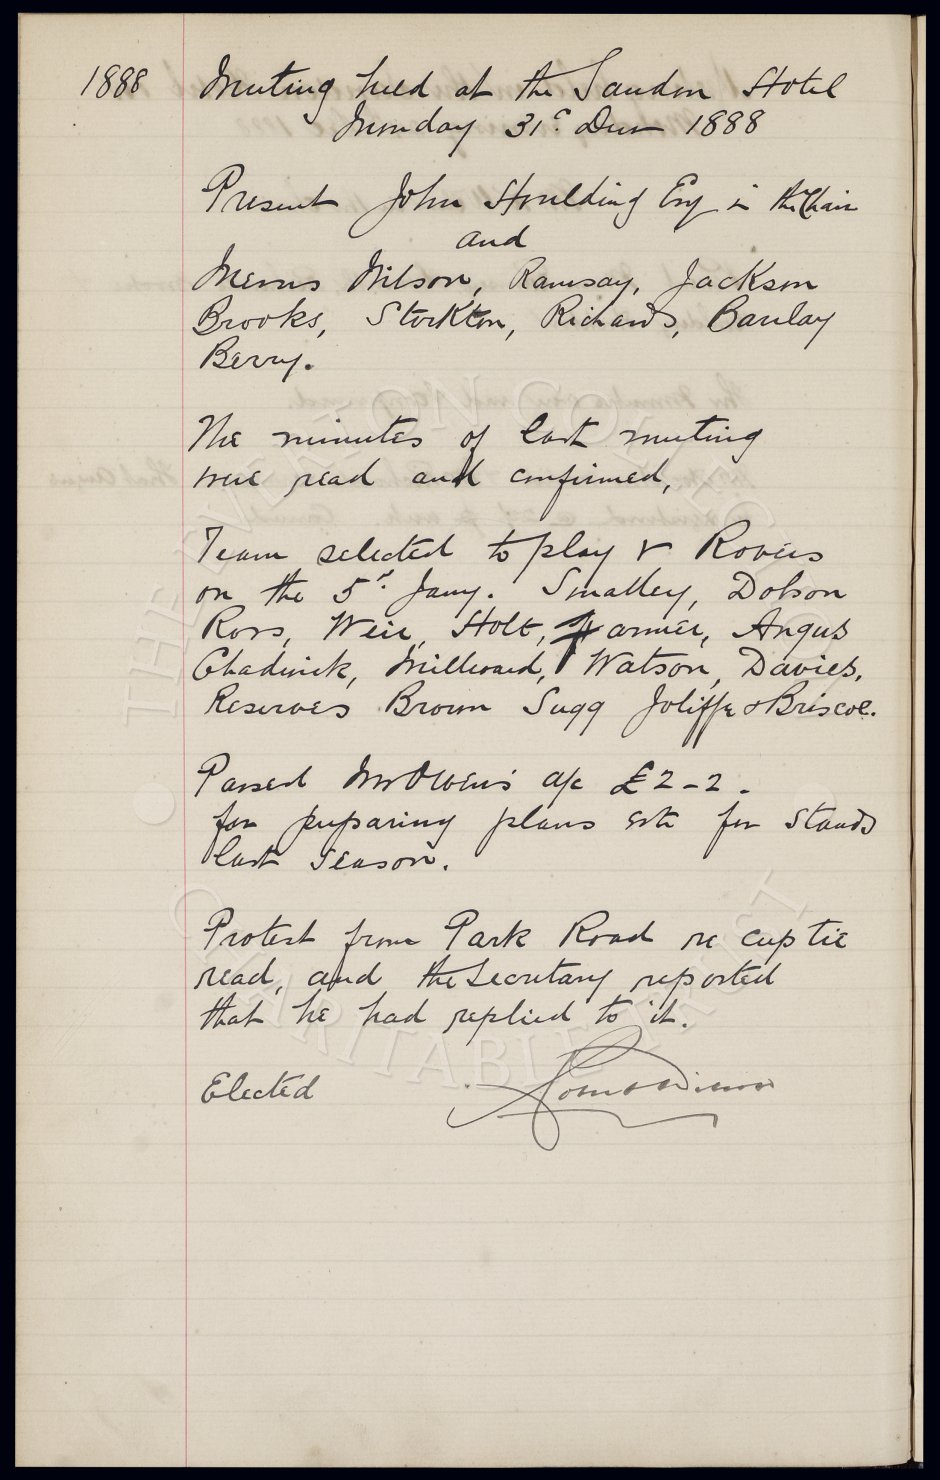 1888 Meeting held at the Sandon Hotel
Monday 31st Decr 1888
Present John Houlding Esq in the Chair
and
Messrs Wilson, Ramsay, Jackson
Brooks, Stockton, Richards, Barclay
Berry.
The minutes of last meeting
were read and confirmed,
Team selected to play v Rovers
on the 5th Jany. Smalley, Dobson
Ross, Weir, Holt, Farmer, Angus
Chadwick, Milward, Watson, Davies.
Reserves Brown Sugg Joliffe & Briscoe.
Passed Mr Owens a/c £2-2-
for preparing plans etc for stands
last season.
Protest from Park Road re cup tie
read, and the Secretary reported
that he had replied to it.
Elected
THE EVERTON COLLECTION
CHARITABLE TRUST